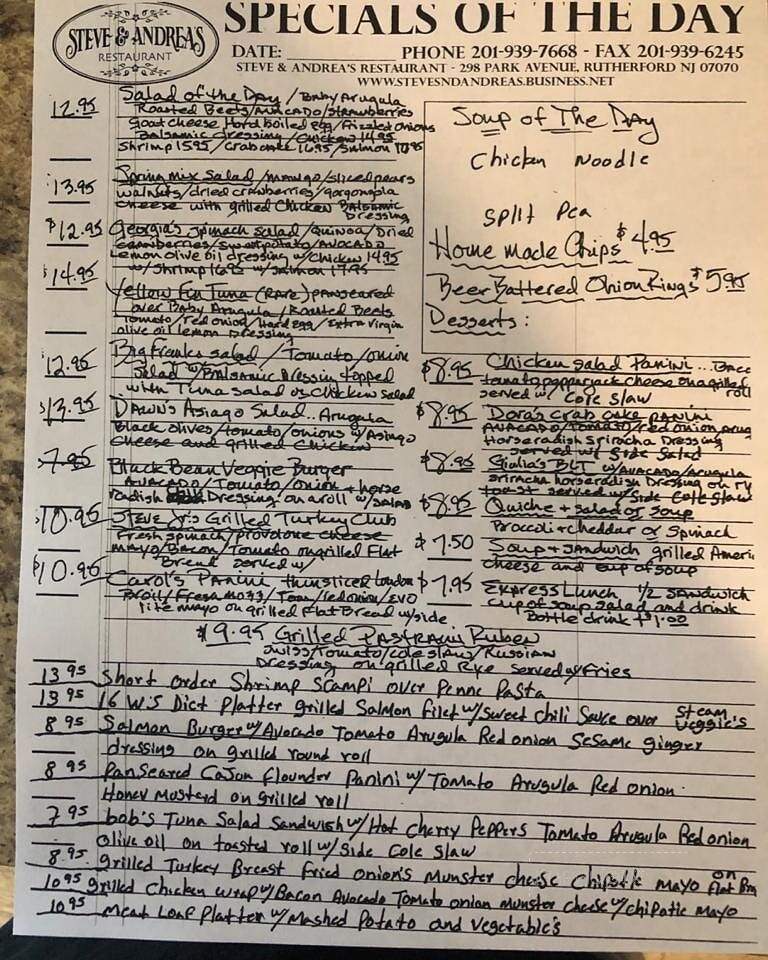 STEVE & ANDREAS
RESTAURANT
SPECIALS OF THE DAY
DATE: PHONE 201-939-7668 - FAX 201-939-6245
STEVE & ANDREA'S RESTAURANT - 298 PARK AVENUE, RUTHERFORD NJ 07070
WWW.STEVESNDANDREAS.BUSINESS.NET
12.95 Salad of the Day / Baby Arugula
Roasted Beets/Avocado/Strawberries
Goat cheese Hard boiled egg/Frizzled onions
Balsamic dressing/Chicken 14.95
Shrimp 15.95/crabcake 16.95/Salmon 17.95
13.95 Spring mix Salad/mango/sliced pears
walnuts/dried cranberries/gorgonzola
cheese with grilled Chicken Balsamic
Dressing
$12.95 Georgia's spinach salad/Quinoa/Dried
cranberries/sweet potato/AVOCADO
Lemon olive oil dressing w/Chicken 14.95
w/Shrimp 16.95 w/Salmon 17.95
$14.95 Yellow Fin Tuna (RARE) panseared
over Baby Arugula/Roasted Beets
Tomato/red onion/Hard Egg/Extra Virgin
olive oil lemon Dressing
$12.95 Big Franks salad / Tomato/onion
Salad w/Balsamic Dressing topped
with Tuna salad or Chicken Salad
$13.95 Dawn's Asiago Salad.. Arugula
Black olives/tomato/onions w/Asiago
Cheese and grilled Chicken
$7.95 Black Bean Veggie Burger
Avocado/Tomato/onion + horse
radish Dressing/on a roll w/SALAD
$10.95 Steve Jr's Grilled Turkey Club
Fresh spinach/provolone cheese
mayo/Bacon/Tomato on grilled Flat
Bread served w/
$10.95 Carol's Panini thin sliced London
Broil/Fresh mozz/Tom/red onion/EVO
lite mayo on grilled Flat Bread w/side
Soup of The Day
Chicken Noodle
Split Pea
Home made Chips $4.95
Beer Battered Onion Rings $5.95
Desserts:
$8.95 Chicken Salad Panini ... Bacc
tomato pepperjack cheese on a grilled
roll
served w/ Cole Slaw
$8.95 Dora's crab cake PANINI
AVACADO/Tomato/red onion arug
Horseradish Sriracha Dressing
served w/ Side Salad
$8.95 Giulia's BLT w/AVACADO/Arugula
sriracha horseradish Dressing on ry
toast served w/Side Cole Slaw
$8.95 Quiche + salad or soup
Broccoli + cheddar or Spinach
$7.50 Soup + sandwich grilled Ameri
cheese and cup of soup
$7.95 Express Lunch, 1/2 sandwich
cup of soup salad and drink
Bottle drink + $1.00
$9.95 Grilled PASTRAMI Ruben
Swiss/Tomato/coleslaw/Russian
Dressing on grilled Rye served w/Fries
13.95 Short order Shrimp Scampi over Penne Pasta
13.95 16 W's Diet Platter grilled Salmon filet w/Sweet chili Sauce over Steam
Veggie's
8.95 Salmon Burger w/Avocado Tomato Arugula Red onion Sesame ginger
dressing on grilled round roll
8.95 Panseared Cajon flounder Panini w/ Tomato Arugula Red onion
Honey Mustard on grilled roll
7.95 bob's Tuna Salad Sandwish w/ Hot Cherry Peppers Tomato Arugula Red onion
Olive oil on toasted roll w/ Side Cole Slaw
8.95 grilled Turkey Breast Fried onion's Munster cheese Chipotle mayo on
Flat Bre
10.95 grilled Chicken wrap w/Bacon Avocado Tomato onion munster cheese w/chipotle mayo
10.95 meat Loaf Platter w/Mashed Potato and Vegetable's